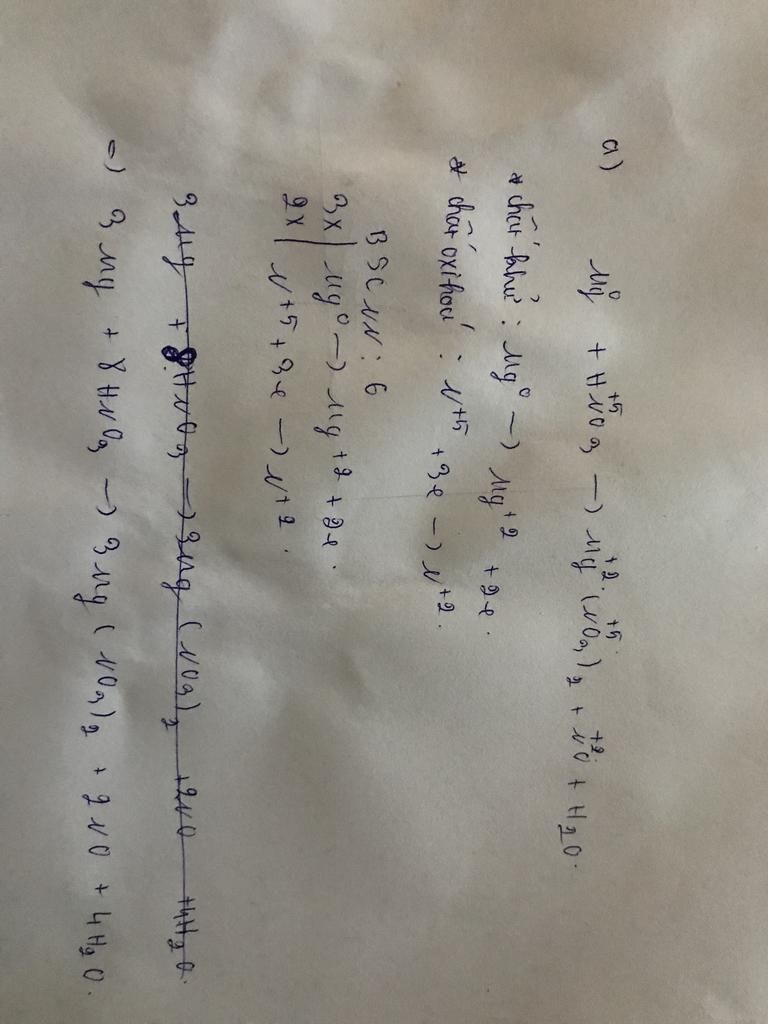 a) Mg⁰ + HN⁺⁵O₃ → Mg⁺²(N⁺⁵O₃)₂ + N⁺²O + H₂O.
* chất khử : Mg⁰ → Mg⁺² + 2e.
* chất oxi hoá : N⁺⁵ + 3e → N⁺².
BSCNN : 6
3x | Mg⁰ → Mg⁺² + 2e.
2x | N⁺⁵ + 3e → N⁺².
3Mg + 8HNO₃ → 3Mg(NO₃)₂ + 2NO + 4H₂O.
=) 3Mg + 8HNO₃ → 3Mg(NO₃)₂ + 2NO + 4H₂O.